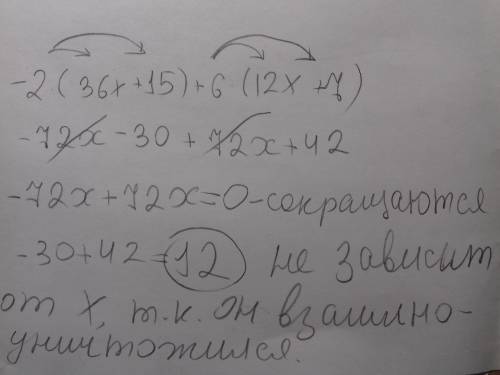 -2(36x+15)+6(12x+7)
-72x-30+72x+42
-72x+72x=0-сокращаются
-30+42=12 не зависит
от x, т.к. он взаимно-
уничтожился.